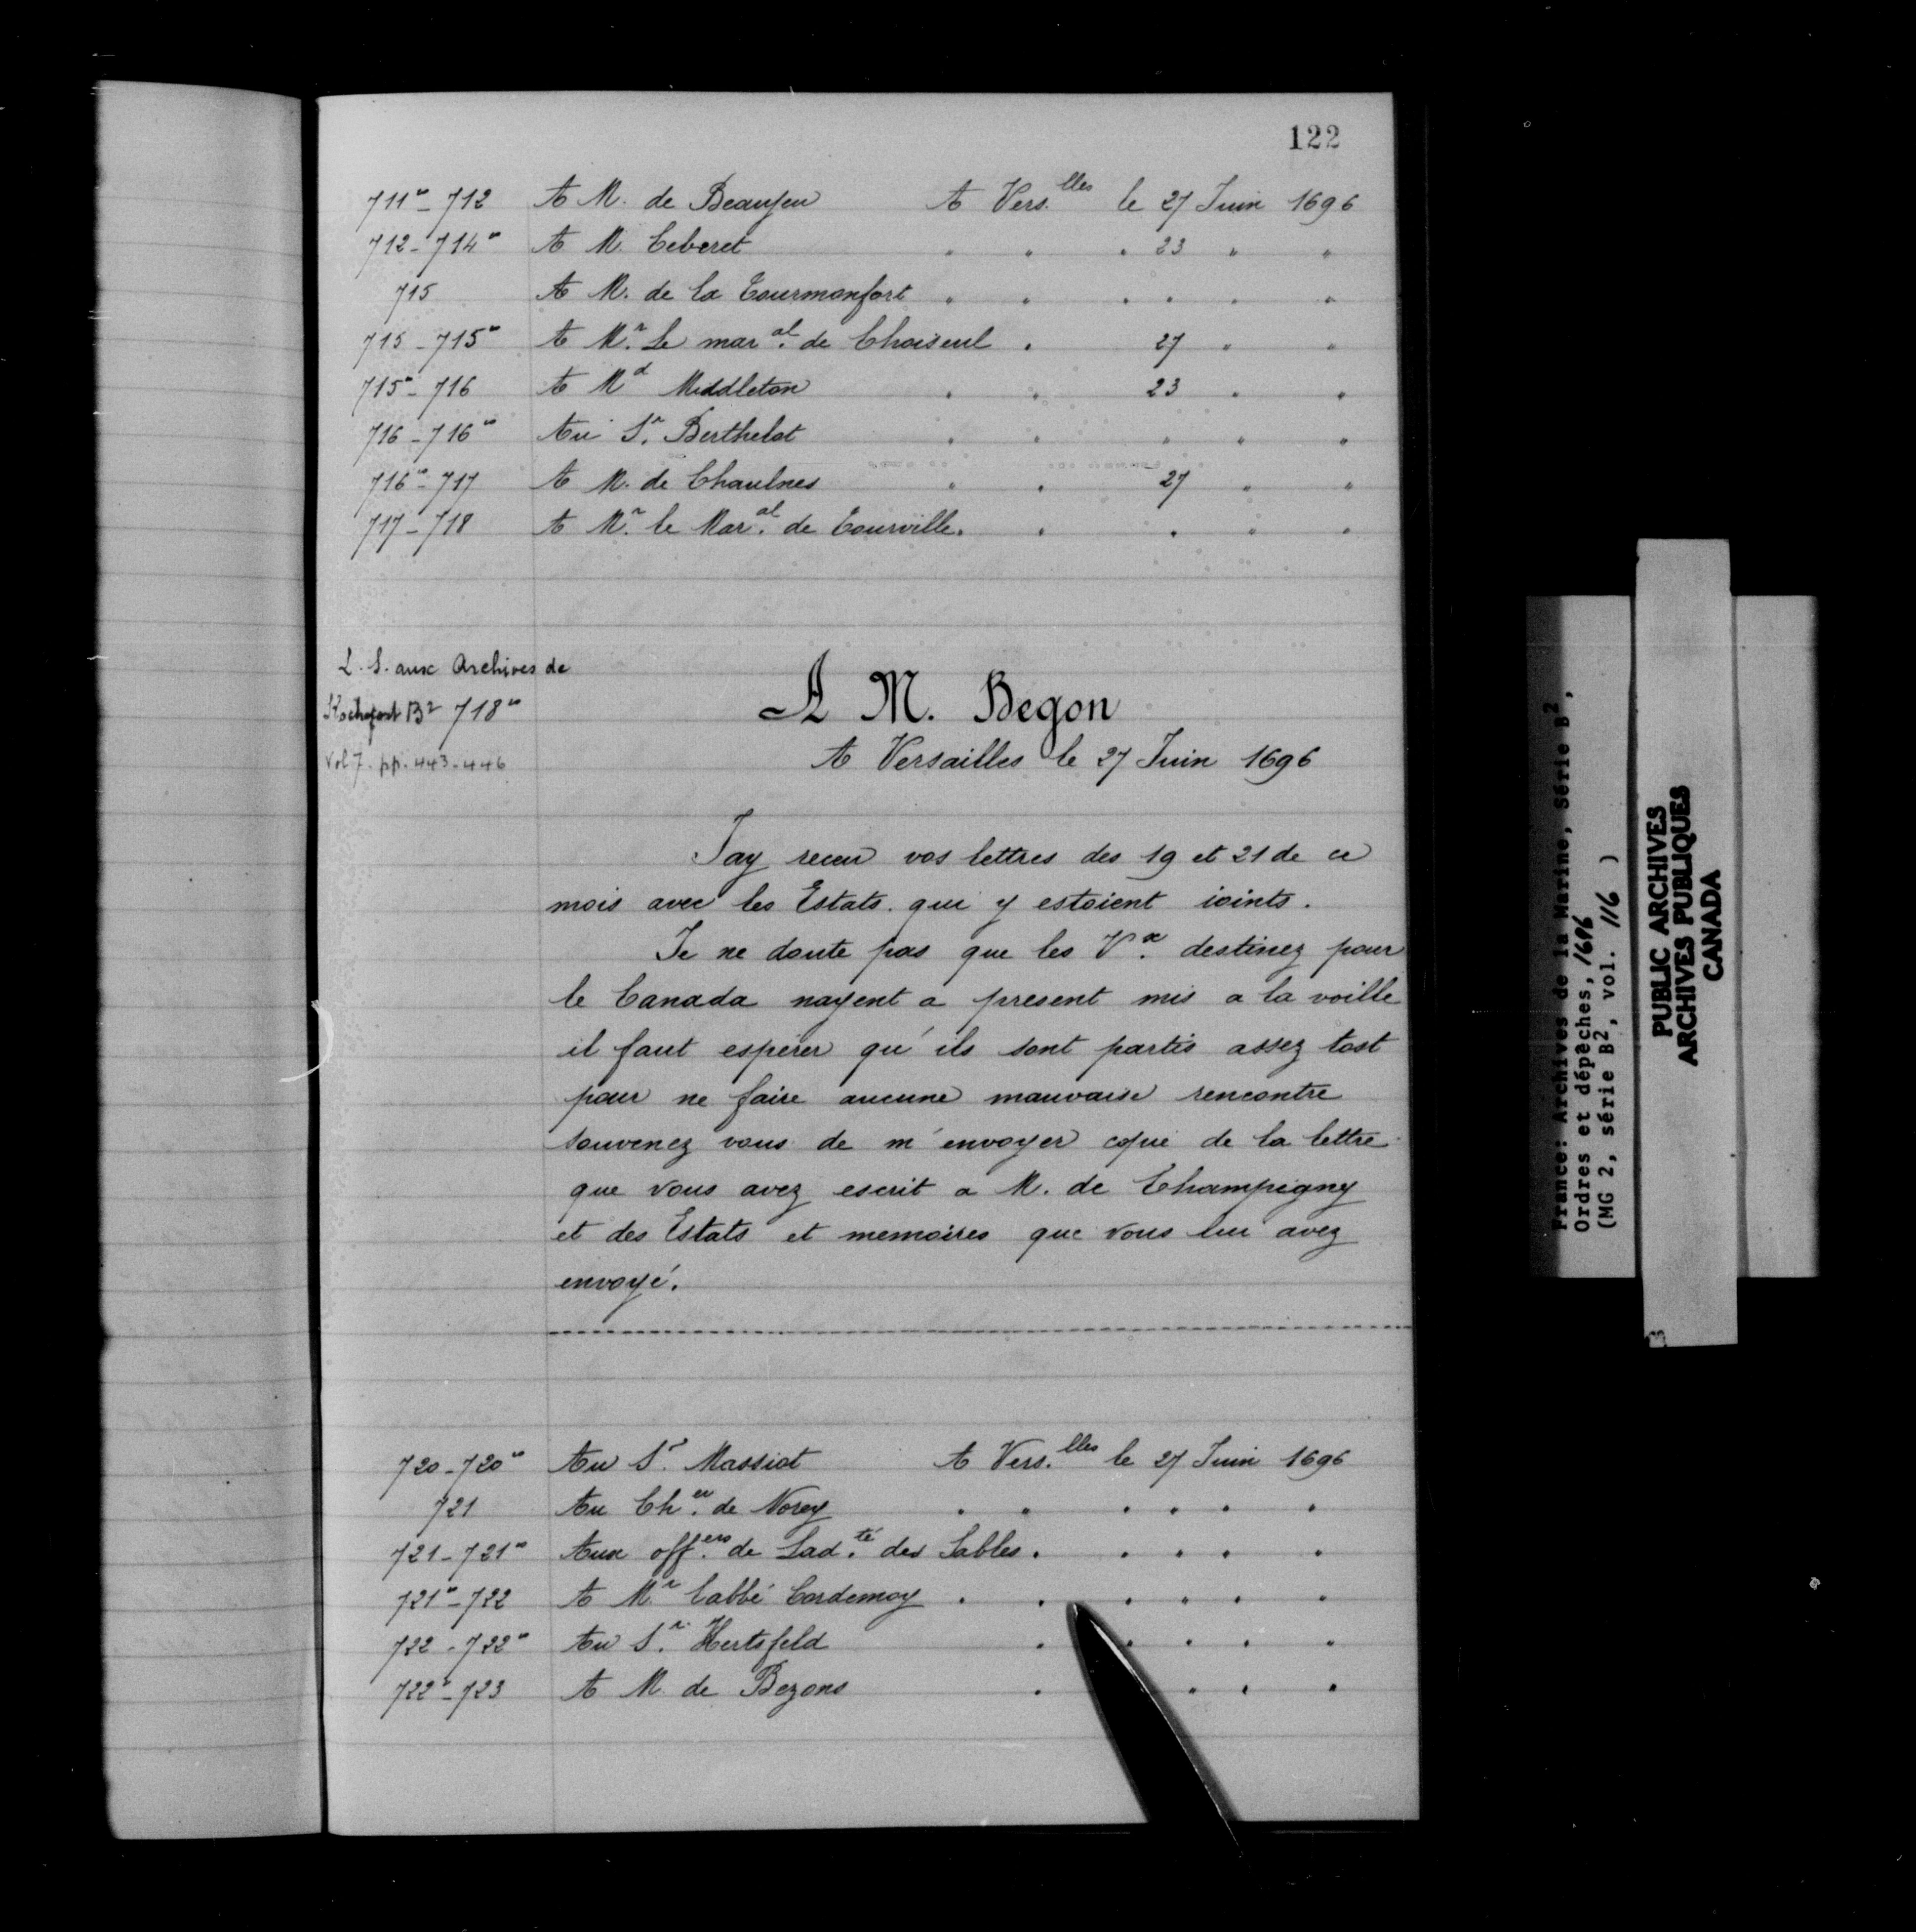 122
711vo-712 A M. de Beaujeu A Vers.lles le 27 Juin 1696
712-714vo A M. Ceberet " " " 23 " "
715 A M. de la Tourmonfort " " " " " "
715-715vo A Mr. Le mar.al de Choiseul " 27 " "
715vo-716 A Md Middleton " " 23 " "
716-716vo Au Sr. Berthelot " " " " "
716vo-717 A M. de Chaulnes " " 27 " "
717-718 A Mr. le Mar.al de Tourville. " " " "
L. S. aux Archives de
Rochefort B2 718vo
Vol 7. pp. 443-446
A M. Begon
A Versailles le 27 Juin 1696
Jay receu vos lettres des 19 et 21 de ce
mois avec les Estats qui y estoient ioints.
Je ne doute pas que les V.x destinez pour
le Canada nayent a present mis a la voille
il faut espérer qu'ils sont partis assez tost
pour ne faire aucune mauvaise rencontre
souvenez vous de m'envoyer copie de la lettre
que vous avez escrit a M. de Champigny
et des Estats et memoires que vous lui avez
envoyé.
720-720vo Au Sr. Massiot A Vers.lles le 27 Juin 1696
721 Au Ch.er de Norey " " " " " "
721-721vo Aux off.ers de Lad.té des Sables " " " " "
721vo-722 A Mr. l'abbé Cordemoy " " " " " "
722-722vo Au Sr. Hertsfeld " " " " "
722vo-723 A M. de Bezons " " " "
France: Archives de la Marine, Série B2,
Ordres et dépêches, 1696
(MG 2, série B2, vol. 116 )
PUBLIC ARCHIVES
ARCHIVES PUBLIQUES
CANADA